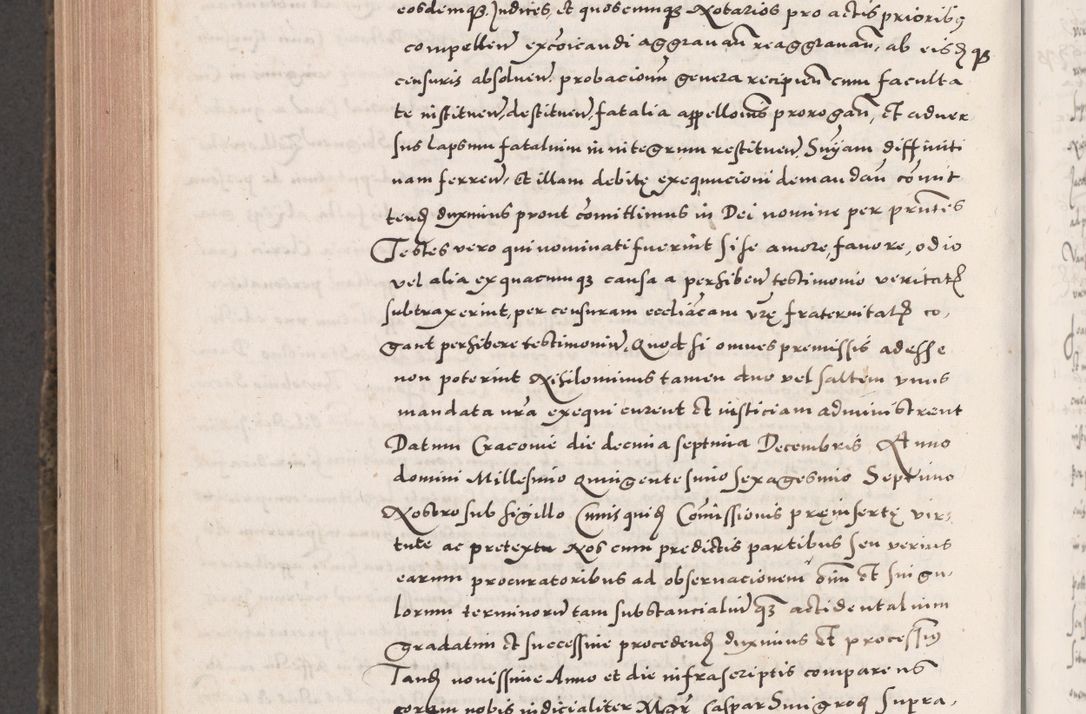 eosdemq₃ Judices, et quoscumq₃ Notarios pro actis prioribꝯ
compellen̄ exc̄oicandi aggravan̄ reaggravan̄, ab eisdq₃
censuris absolven̄. probacionū genera recipien̄ cum faculta
te instituen̄, destituen̄, fatalia appelloīnis prorogan̄, et adver
sus lapsum fatalium in integrum restituen̄, Sn̄iam diffiniti
vam ferren̄, Et illam debitę exequucioni demandan̄ com̄it
tend duximus prout com̄ittimus in Dei nomine per pr̄ntes
Testes vero qui nominati fuerint si se amore, favore, odio
vel alia ex quacumq₃ causa a perhiben̄ testimonio veritatꝭ
subtraxerint, per censuram eccl̄iacam vr̄ę fraternitatꝭ co,
gant perhibere testimoniū, Quod si omnes premissis adesse
non poterint Nihilominus tamen duo vel saltem unus
mandata nr̄a exequi curent et iusticiam administrent
Datum Cracovie die decima septima Decembris Anno
domini Millesimo Quingentesimo sexagesimo Septimo
Nostro sub sigillo Cuius quid Com̄issionis pręinsertę vir,
tute ac pretextu Nos cum predictis partibus seu verius
earum procuratoribus ad observacionem om̄ et singu,
lorum terminorū tam substancialiū q₃ accidentalium
gradatim et successive procedend duximus et processimꝯ
Tand novissime Anno et die infrascriptis comparens
coram nobis iudicialiter Mgr̄ Caspar Sung groch supra,